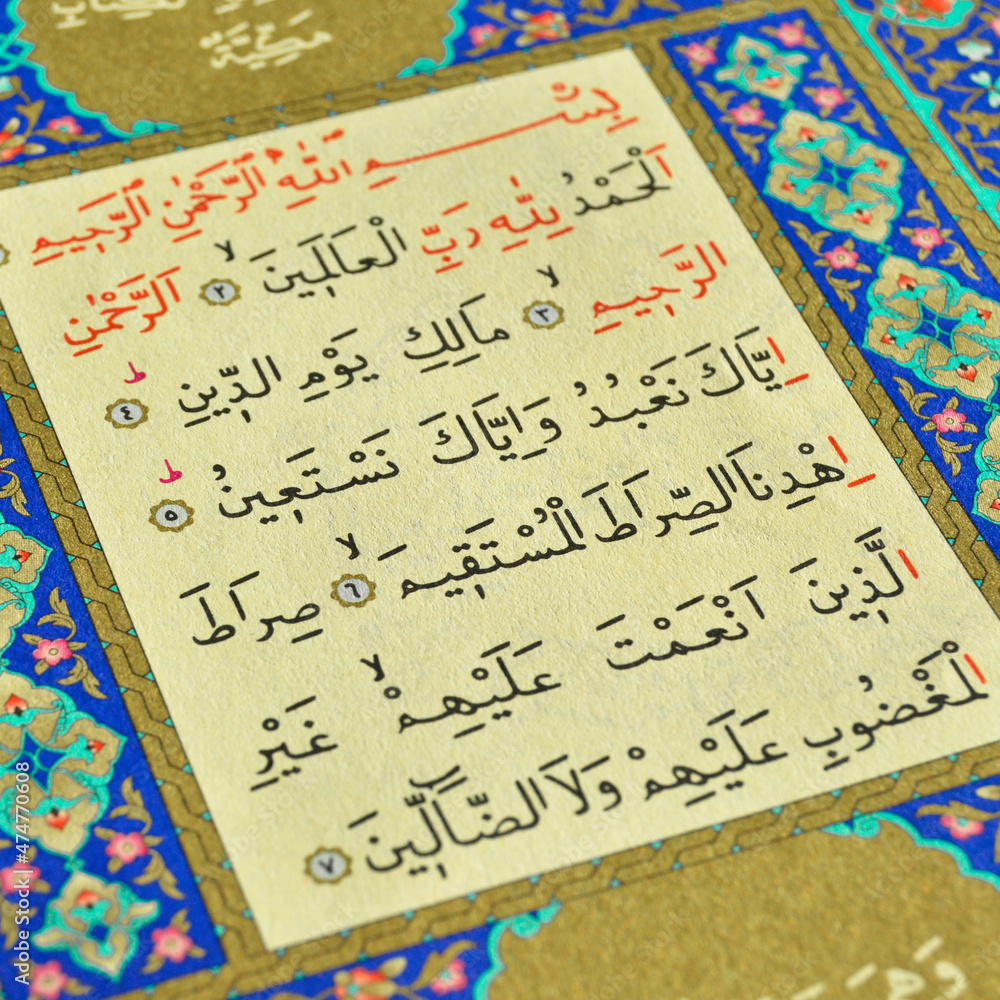 مَكِّيَّةٌ
بِسْمِ اللّٰهِ الرَّحْمٰنِ الرَّحِيمِ
اَلْحَمْدُ لِلّٰهِ رَبِّ الْعَالَمِينَۙ ٢ اَلرَّحْمٰنِ
الرَّحِيمِۙ ٣ مَالِكِ يَوْمِ الدِّينِۜ ٤
اِيَّاكَ نَعْبُدُ وَاِيَّاكَ نَسْتَعِينُۜ ٥
اِهْدِنَا الصِّرَاطَ الْمُسْتَقِيمَۙ ٦ صِرَاطَ
الَّذِينَ اَنْعَمْتَ عَلَيْهِمْۙ غَيْرِ
الْمَغْضُوبِ عَلَيْهِمْ وَلَا الضَّٓالِّينَ ٧
Adobe Stock | #474770608